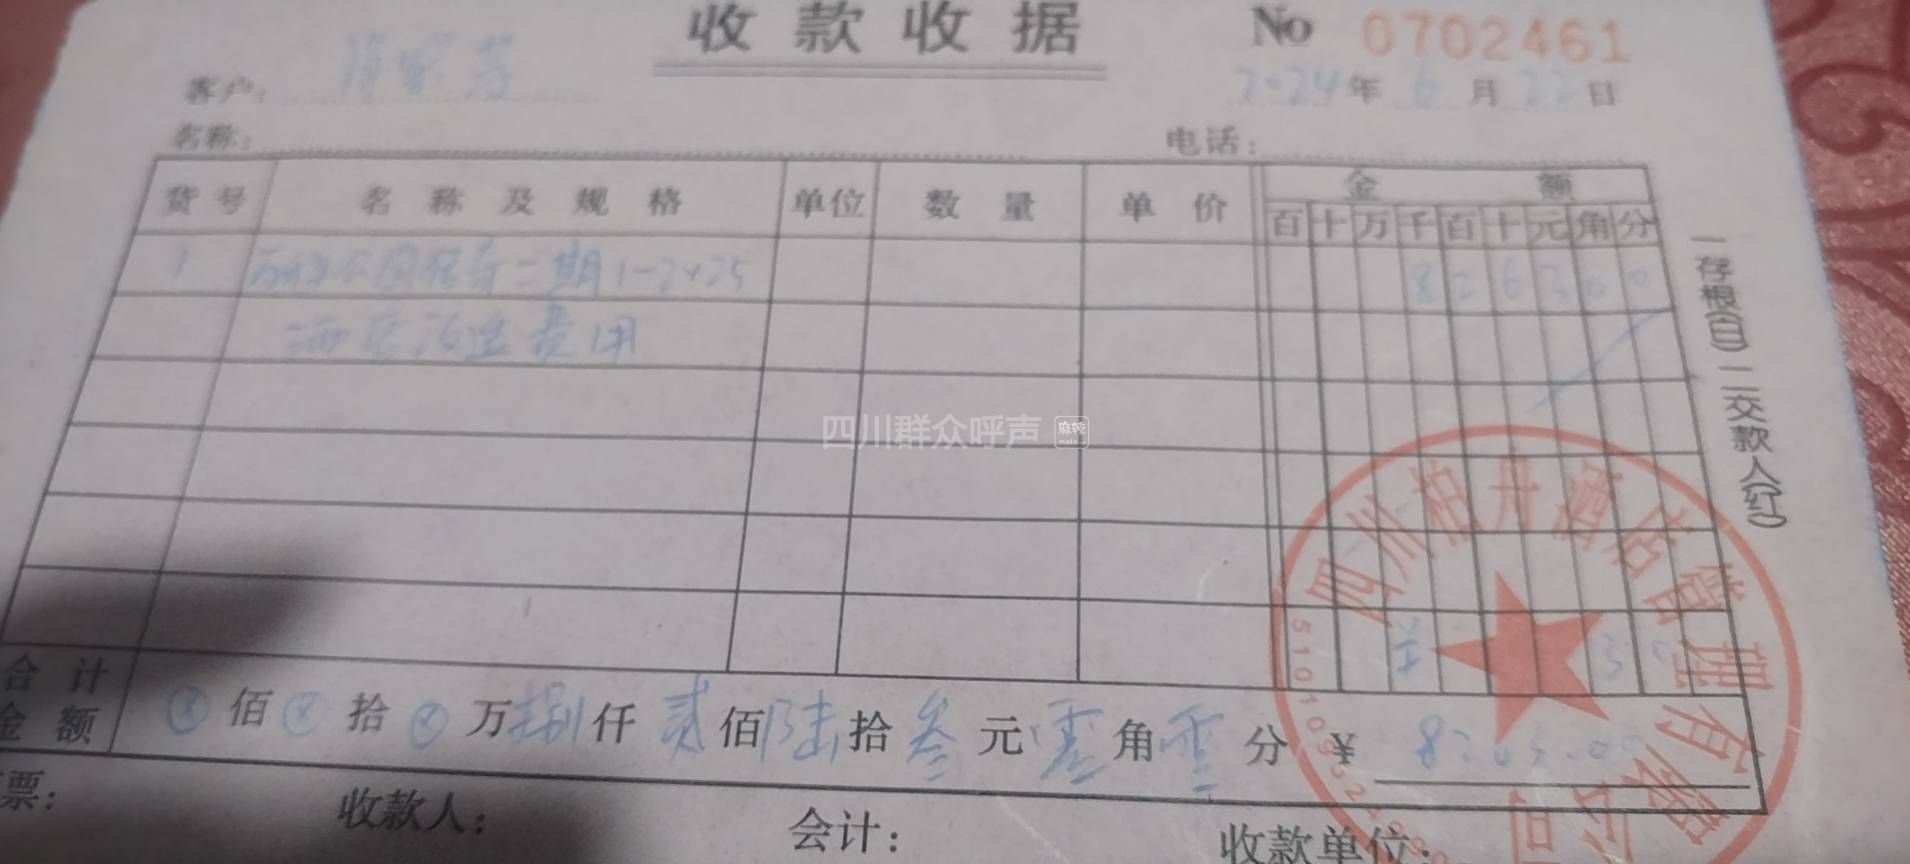 收款收据
No 0702461
客户:
2024年6月22日
名称:
电话:
货号 名称及规格 单位 数量 单价 金额
百十万千百十元角分
1 二期1-2425 826300
酒店改造费用
一存根(白) 二交款人(红)
四川群众呼声 麻辣
四川柏丹酒店管理有限公司
合计金额 ⊗佰⊗拾⊗万捌仟贰佰陆拾叁元零角零分 ¥8263.00
票:
收款人:
会计:
收款单位: